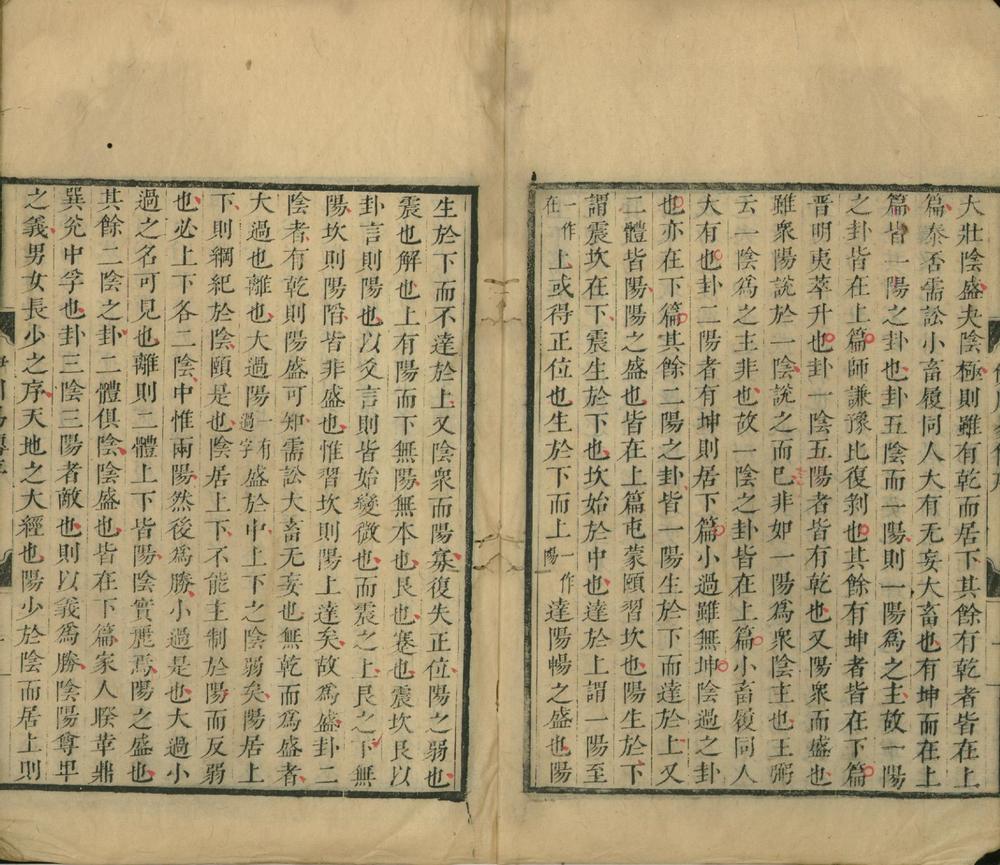 大壯陰盛夬陰極則雖有乾而居下其餘有乾者皆在上
篇泰否需訟小畜履同人大有无妄大畜也有坤而在上
篇皆一陽之卦也卦五陰而一陽則一陽爲之主故一陽
之卦皆在上篇師謙豫比復剝也其餘有坤者皆在下篇
晉明夷萃升也卦一陰五陽者皆有乾也又陽衆而盛也
雖衆陽說於一陰說之而已非如一陽爲衆陰主也王弼
云一陰爲之主非也故一陰之卦皆在上篇小畜履同人
大有也卦二陽者有坤則居下篇小過雖無坤陰過之卦
也亦在下篇其餘二陽之卦皆一陽生於下而達於上又
二體皆陽陽之盛也皆在上篇屯蒙頤習坎也陽生於下
謂震坎在下震生於下也坎始於中也達於上謂一陽至
一作在上或得正位也生於下而上一作陽達陽暢之盛也陽
生於下而不達於上又陰衆而陽寡復失正位陽之弱也
震也解也上有陽而下無陽無本也艮也蹇也震坎艮以
卦言則陽也以爻言則皆始變微也而震之上艮之下無
陽坎則陽陷皆非盛也惟習坎則陽上達矣故爲盛卦二
陰者有乾則陽盛可知需訟大畜无妄也無乾而爲盛者
大過也離也大過陽一有過字盛於中上下之陰弱矣陽居上
下則綱紀於陰頤是也陰居上下不能主制於陽而反弱
也必上下各二陰中惟兩陽然後爲勝小過是也大過小
過之名可見也離則二體上下皆陽陰實麗焉陽之盛也
其餘二陰之卦二體俱陰陰盛也皆在下篇家人睽革鼎
巽兊中孚也卦三陰三陽者敵也則以義爲勝陰陽尊卑
之義男女長少之序天地之大經也陽少於陰而居上則